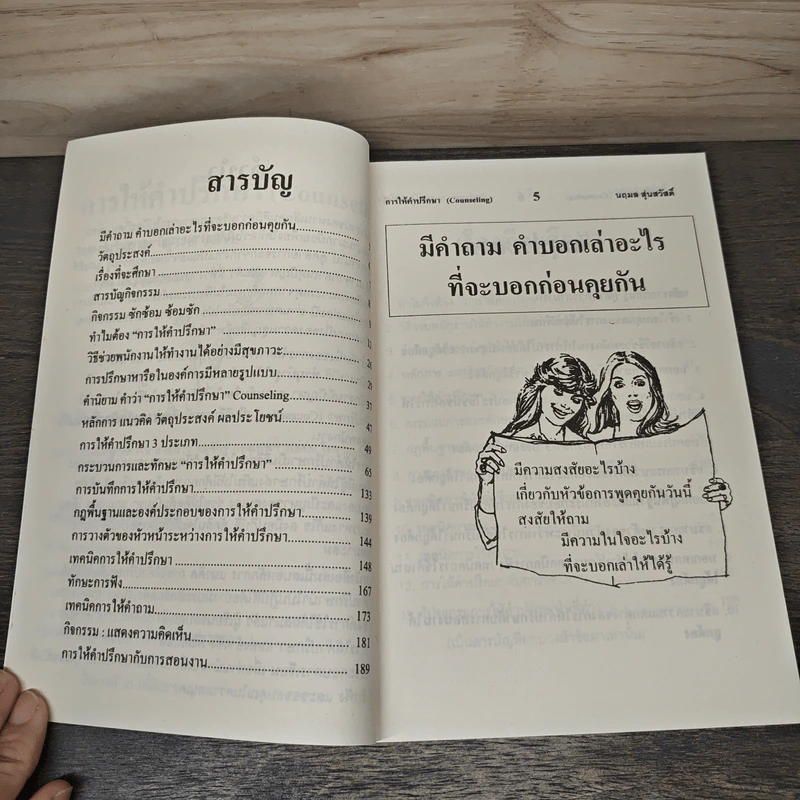 สารบัญ
มีคำถาม คำบอกเล่าอะไรที่จะบอกก่อนคุยกัน
วัตถุประสงค์
เรื่องที่จะศึกษา
สารบัญกิจกรรม
กิจกรรม ซักซ้อม ซ้อมซัก
ทำไมต้อง “การให้คำปรึกษา”
วิธีช่วยพนักงานให้ทำงานได้อย่างมีสุขภาวะ
การปรึกษาหารือในองค์การมีหลายรูปแบบ
คำนิยาม คำว่า “การให้คำปรึกษา” Counseling 37
หลักการ แนวคิด วัตถุประสงค์ ผลประโยชน์ 47
การให้คำปรึกษา 3 ประเภท 49
กระบวนการและทักษะ “การให้คำปรึกษา” 65
การบันทึกการให้คำปรึกษา 133
กฎพื้นฐานและองค์ประกอบของการให้คำปรึกษา 139
การวางตัวของหัวหน้าระหว่างการให้คำปรึกษา 144
เทคนิคการให้คำปรึกษา 148
ทักษะการฟัง 167
เทคนิคการให้คำถาม 173
กิจกรรม : แสดงความคิดเห็น 181
การให้คำปรึกษากับการสอนงาน 189
การให้คำปรึกษา (Counseling) 5 นฤมล สุ่นสวัสดิ์
มีคำถาม คำบอกเล่าอะไร
ที่จะบอกก่อนคุยกัน
มีความสงสัยอะไรบ้าง
เกี่ยวกับหัวข้อการพูดคุยกันวันนี้
สงสัยให้ถาม
มีความในใจอะไรบ้าง
ที่จะบอกเล่าให้ได้รู้